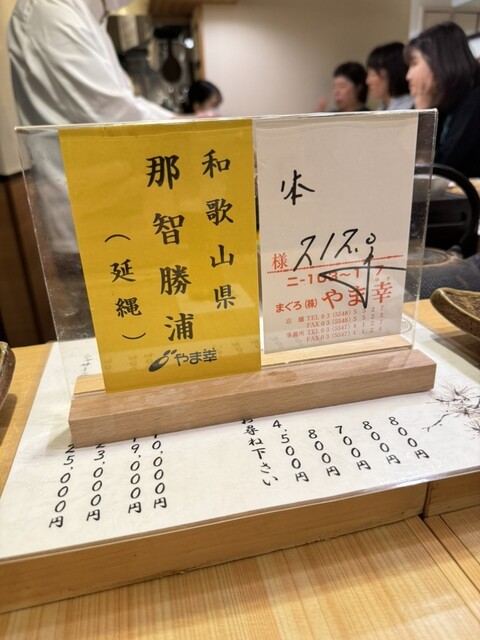 和歌山県
那智勝浦
（延縄）
やま幸
様
まぐろ（株）やま幸
800円
800円
700円
800円
4,500円
お尋ね下さい
10,000円
19,000円
23,000円
25,000円